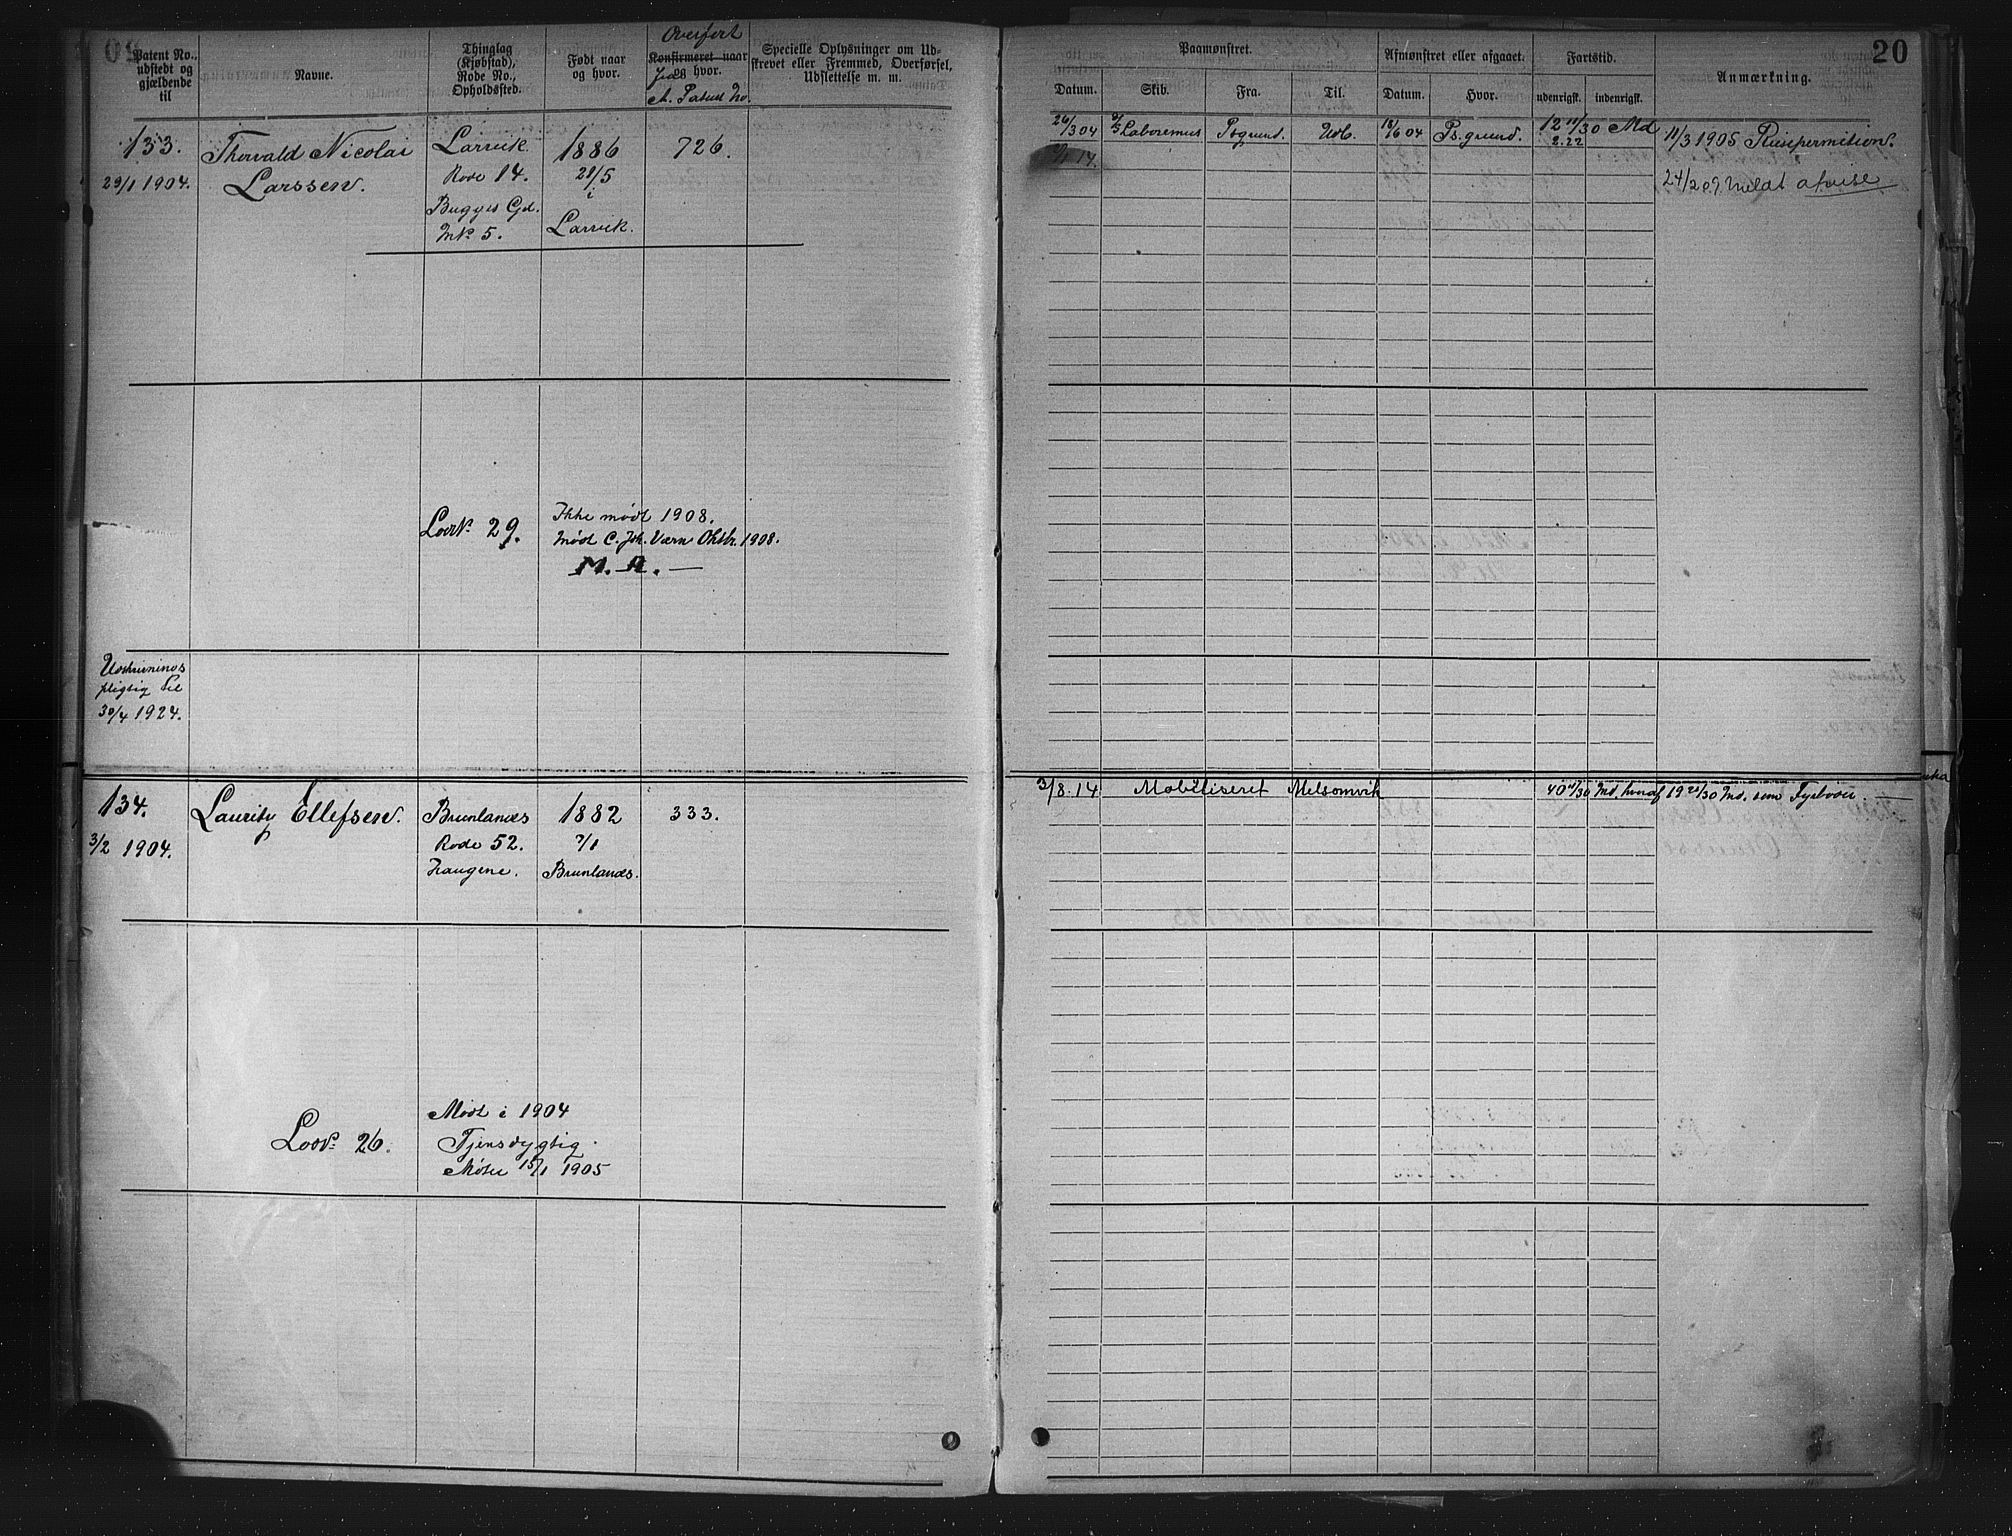 Patent No.,
udstedt og
gjældende
til
Navne.
Thinglag
(Kjøbstad),
Rode No.,
Opholdssted.
Født naar
og hvor.
Overført
Konfirmeret naar
hvor.
A. Patent No.
Specielle Oplysninger om Ud-
skrevet eller Fremmed, Overførsel,
Udslettelse m. m.
133.
29/1 1904.
Thorvald Nicolai
Larssen.
Larvik
Rode 14.
Bugges Gd.
MN. 5.
1886
21/5
i
Larvik.
726.
LodN. 29.
Ikke mødt 1908.
Mødt C. Joh. Værn Oktbr. 1908.
M. A. —
Udskrivnings
pligtig til
30/4 1924.
134.
3/2 1904.
Lauritz Ellefsen.
Brunlanes
Rode 52.
Haugene.
1882
7/1
Brunlanes.
333.
LodN. 26.
Mødt i 1904
Tjensdygtig.
Møter 15/1 1905
20
Paamønstret.
Afmønstret eller afgaaet.
Fartstid.
Anmærkning.
Datum.
Skib.
Fra.
Til.
Datum.
Hvor.
udenrigsk.
indenrigsk.
26/3 04
Laboremus
Psgrund.
Udl.
18/6 04
Ps.grund.
12 11/30 Md
2.22
11/3 1905 Reisepermition.
14.
24/2 09. Meldt afreise
3/8. 14
Mobiliseret Melsomvik
Md. hvoraf 19 Md. som Fyrbøder